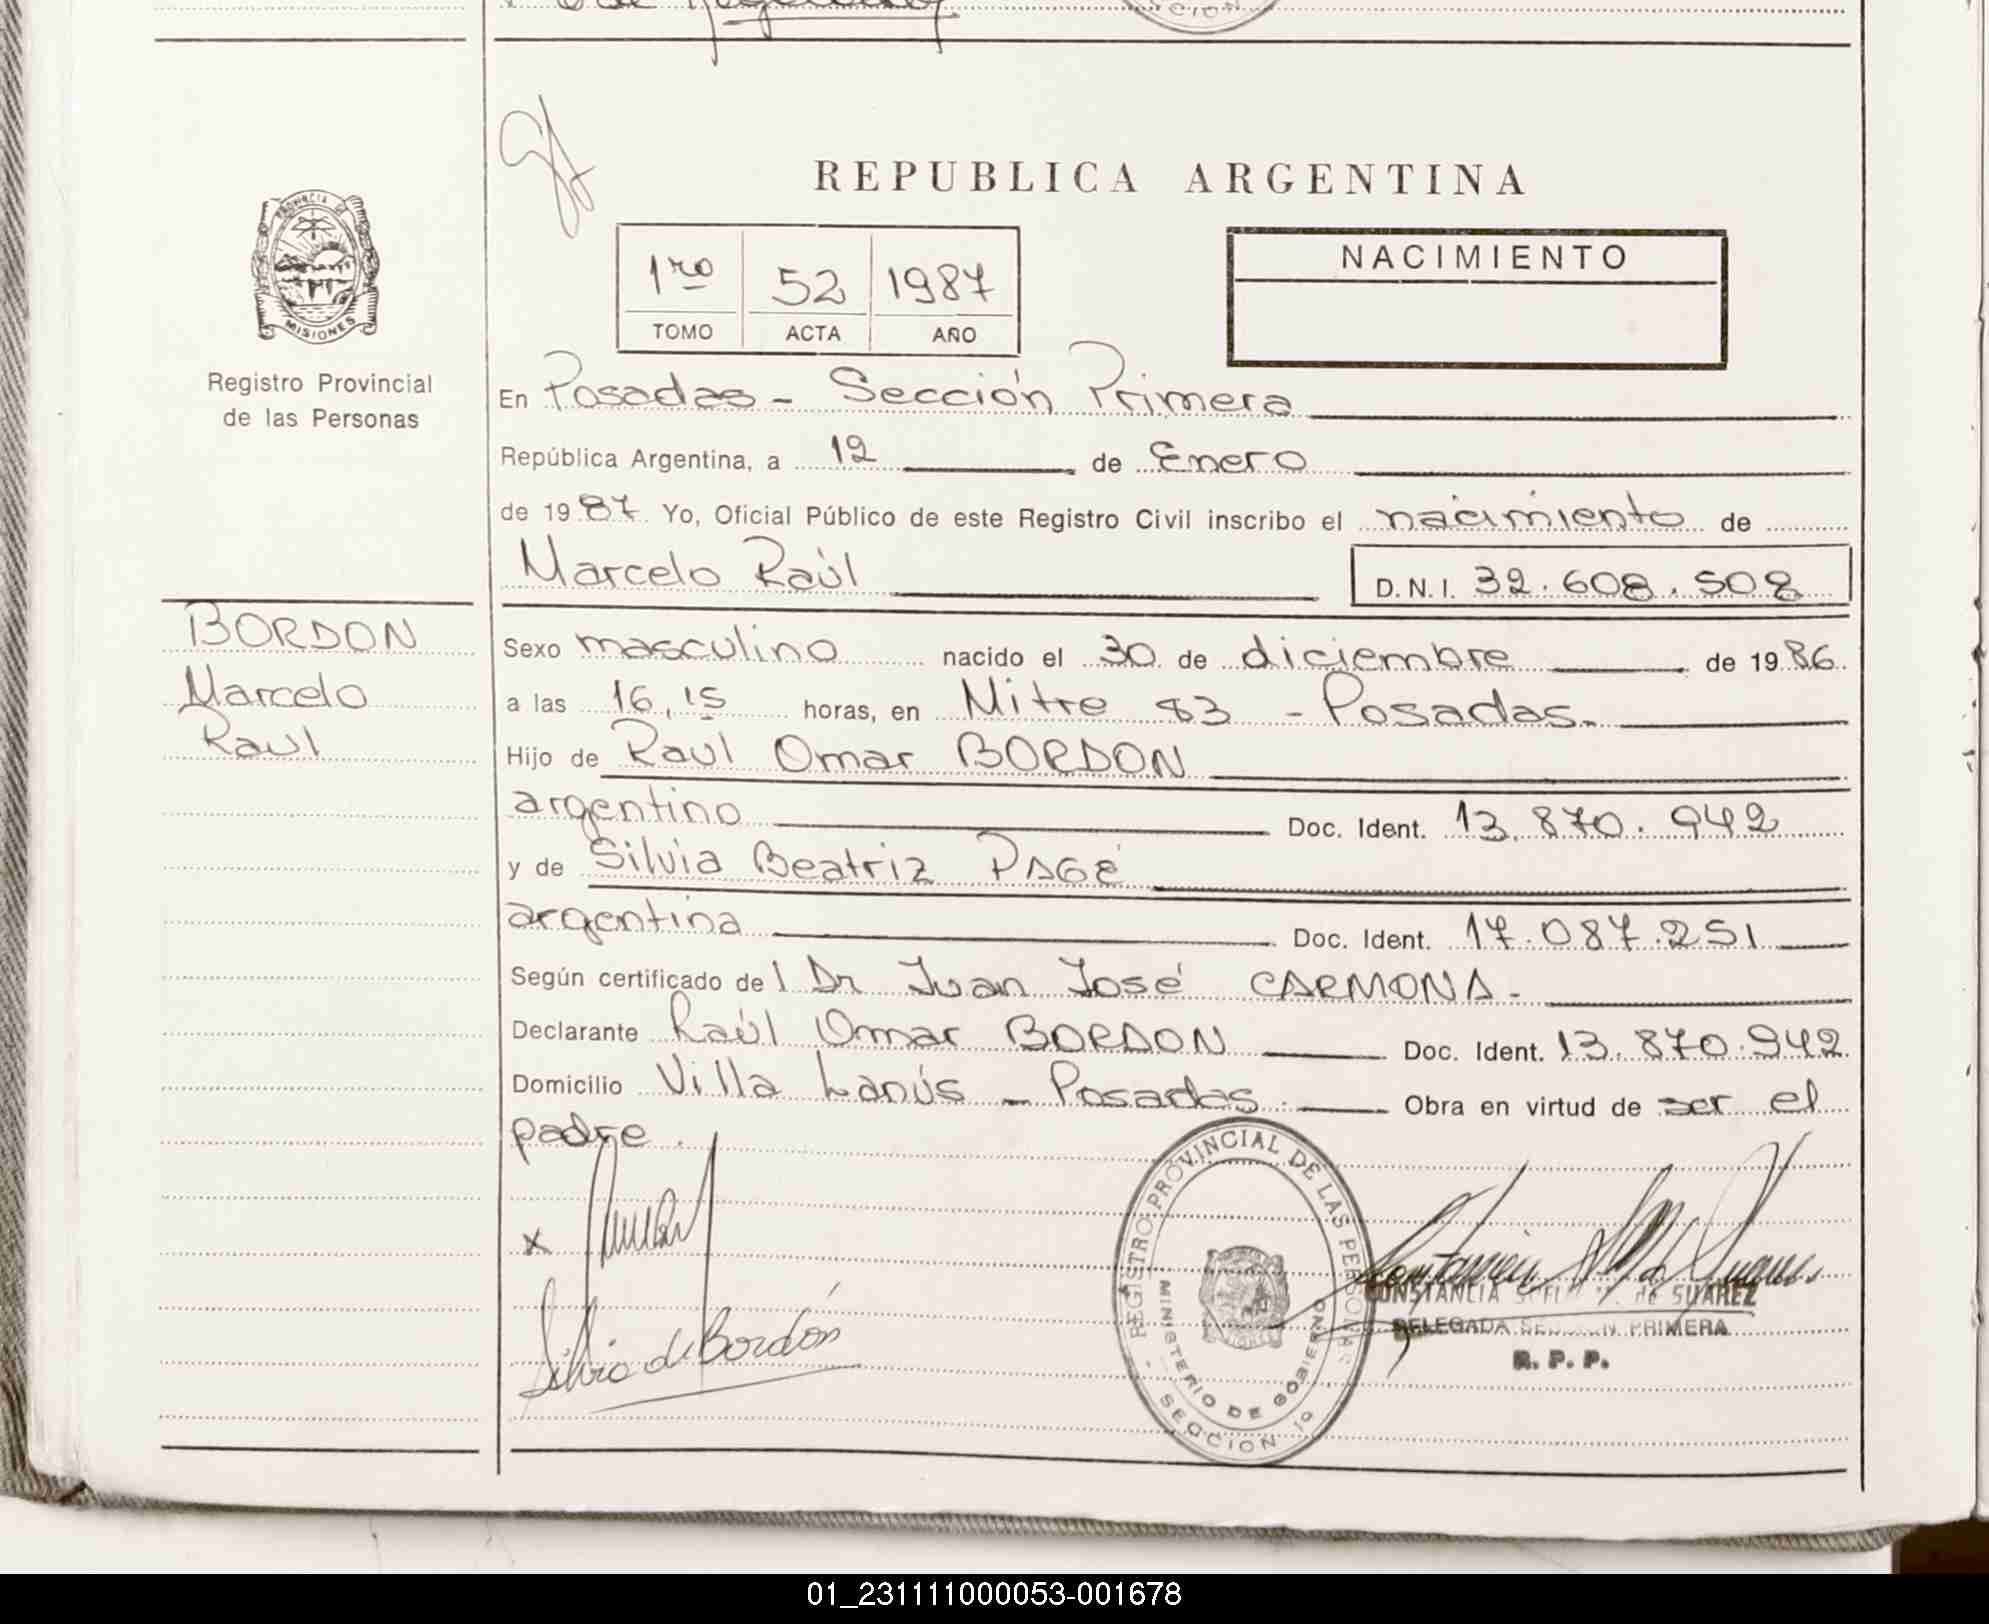 REPUBLICA ARGENTINA
PROVINCIA DE
MISIONES
Registro Provincial
de las Personas
1ro 52 1987
TOMO ACTA AÑO
NACIMIENTO
En Posadas - Sección Primera
República Argentina, a 12 de Enero
de 1987 Yo, Oficial Público de este Registro Civil inscribo el nacimiento de
Marcelo Raúl D.N.I. 32.608.508
BORDON
Marcelo
Raul
Sexo masculino nacido el 30 de diciembre de 1986
a las 16,15 horas, en Mitre 83 - Posadas.
Hijo de Raul Omar BORDON
argentino Doc. Ident. 13.870.942
y de Silvia Beatriz PAGÉ
argentina Doc. Ident. 17.087.251
Según certificado del Dr Juan José CARMONA.-
Declarante Raúl Omar BORDON Doc. Ident. 13.870.942
Domicilio Villa Lanús - Posadas. Obra en virtud de ser el
padre.
x
Silvia de Bordón
REGISTRO PROVINCIAL DE LAS PERSONAS
MINISTERIO DE GOBIERNO
- SECCION 1a
CONSTANCIA de SUAREZ
DELEGADA SECCION PRIMERA
R. P. P.
01_231111000053-001678